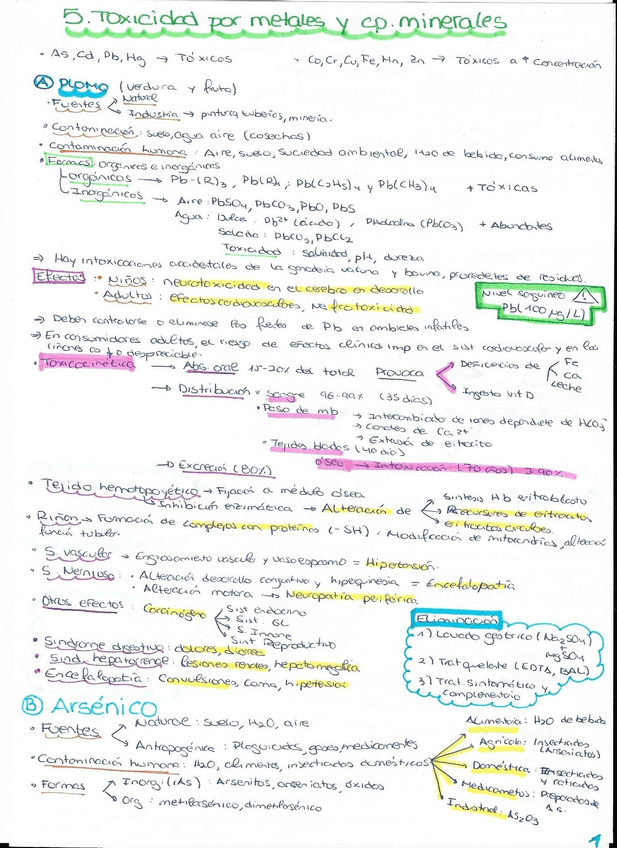 5. Toxicidad por metales y cp. minerales
· As, Cd, Pb, Hg → Tóxicos
· Co, Cr, Cu, Fe, Mn, Zn → Tóxicos a ↑ Concentración
A PLOMO (verdura y fruta)
· Fuentes
Natural
Industria → pintura, tuberías, minería.
· Contaminación: suelo, agua aire (cosechas)
· Contaminación humana: Aire, suelo, suciedad ambiental, H2O de bebida, consumo alimentos
· Formas: orgánicas e inorgánicas
orgánicos → Pb-(R)3, Pb(R)4; Pb(C2H5)4 y Pb(CH3)4 + TÓXICAS
Inorgánicos → Aire: PbSO4, PbCO3, PbO, PbS
Agua: Dulce: Pb2+ (ácido), (PbCO3) + Abundantes
Salada: PbCO3, PbCl2
Toxicidad: salinidad, pH, dureza
⇒ Hay intoxicaciones accidentales de la ganadería y bovina, procedentes de residuos
Efectos: · Niños: neurotoxicidad en el cerebro en desarrollo
· Adultos: Efectos cardiovasculares, Nefrotoxicidad
Nivel sanguíneo
Pb(100 µg/L)
⇒ Deben controlarse o eliminarse las fuentes de Pb en ambientes infantiles
⇒ En consumidores adultos, el riesgo de efectos clínicos imp en el sist cardiovascular y en los
riñones es ↓ o despreciable.
· Toxicocinética → Abs oral 15-20% del total Provoca
Deficiencias de
Fe
Ca
Leche
Ingesta vit D
→ Distribución = Sangre 96-99% (35 días)
· Paso de mb
→ Intercambiador de iones dependiente de HCO3-
→ Canales de Ca2+
→ Extrusión de eritrocito
· Tejidos blandos (40 días)
óseo → Intoxicación (70 años) 90%
→ Excreción (80%)
· Tejido hematopoyético → Fijación a médula ósea
Inhibición enzimática → Alteración de
síntesis Hb eritroblasto
Precursores de eritrocitos
eritrocitos circulares.
· Riñón → Formación de complejos con proteínas (-SH). Modificación de mitocondrias, alteración
función tubular.
· S. vascular → Engrosamiento vascular y vasoespasmo = Hipertensión.
· S. Nervioso: · Alteración desarrollo cognitivo y hiperquinesia = Encefalopatía
· Alteración motora → Neuropatía periférica
· Otros efectos: Carcinógeno
Sist endocrino
Sist. GI
S. Inmune
Sist Reproductivo
· Síndrome digestivo: dolores, diarrea
· Sind. hepatorrenal: lesiones renales, hepatomegalia
· Encefalopatía: Convulsiones, coma, hipertensión
Eliminación
1) Lavado gástrico (Na2SO4)
+
MgSO4
2) Trat quelante (EDTA, BAL)
3) Trat. Sintomático y
complementario
B Arsénico
· Fuentes
Natural: suelo, H2O, aire
Antropogénica: Plaguicidas, gases, medicamentos
· Contaminación humana: H2O, alimentos, insecticidas domésticos
Alimentaria: H2O de bebida
Agrícola: Insecticidas
(Arseniatos)
Doméstica: Insecticidas
y raticidas
Medicamentos: Preparados de
As.
Industrial: As2O3
· Formas
Inorg. (iAs): Arsenitos, arseniatos, óxidos
Org: metilarsénico, dimetilarsénico
1